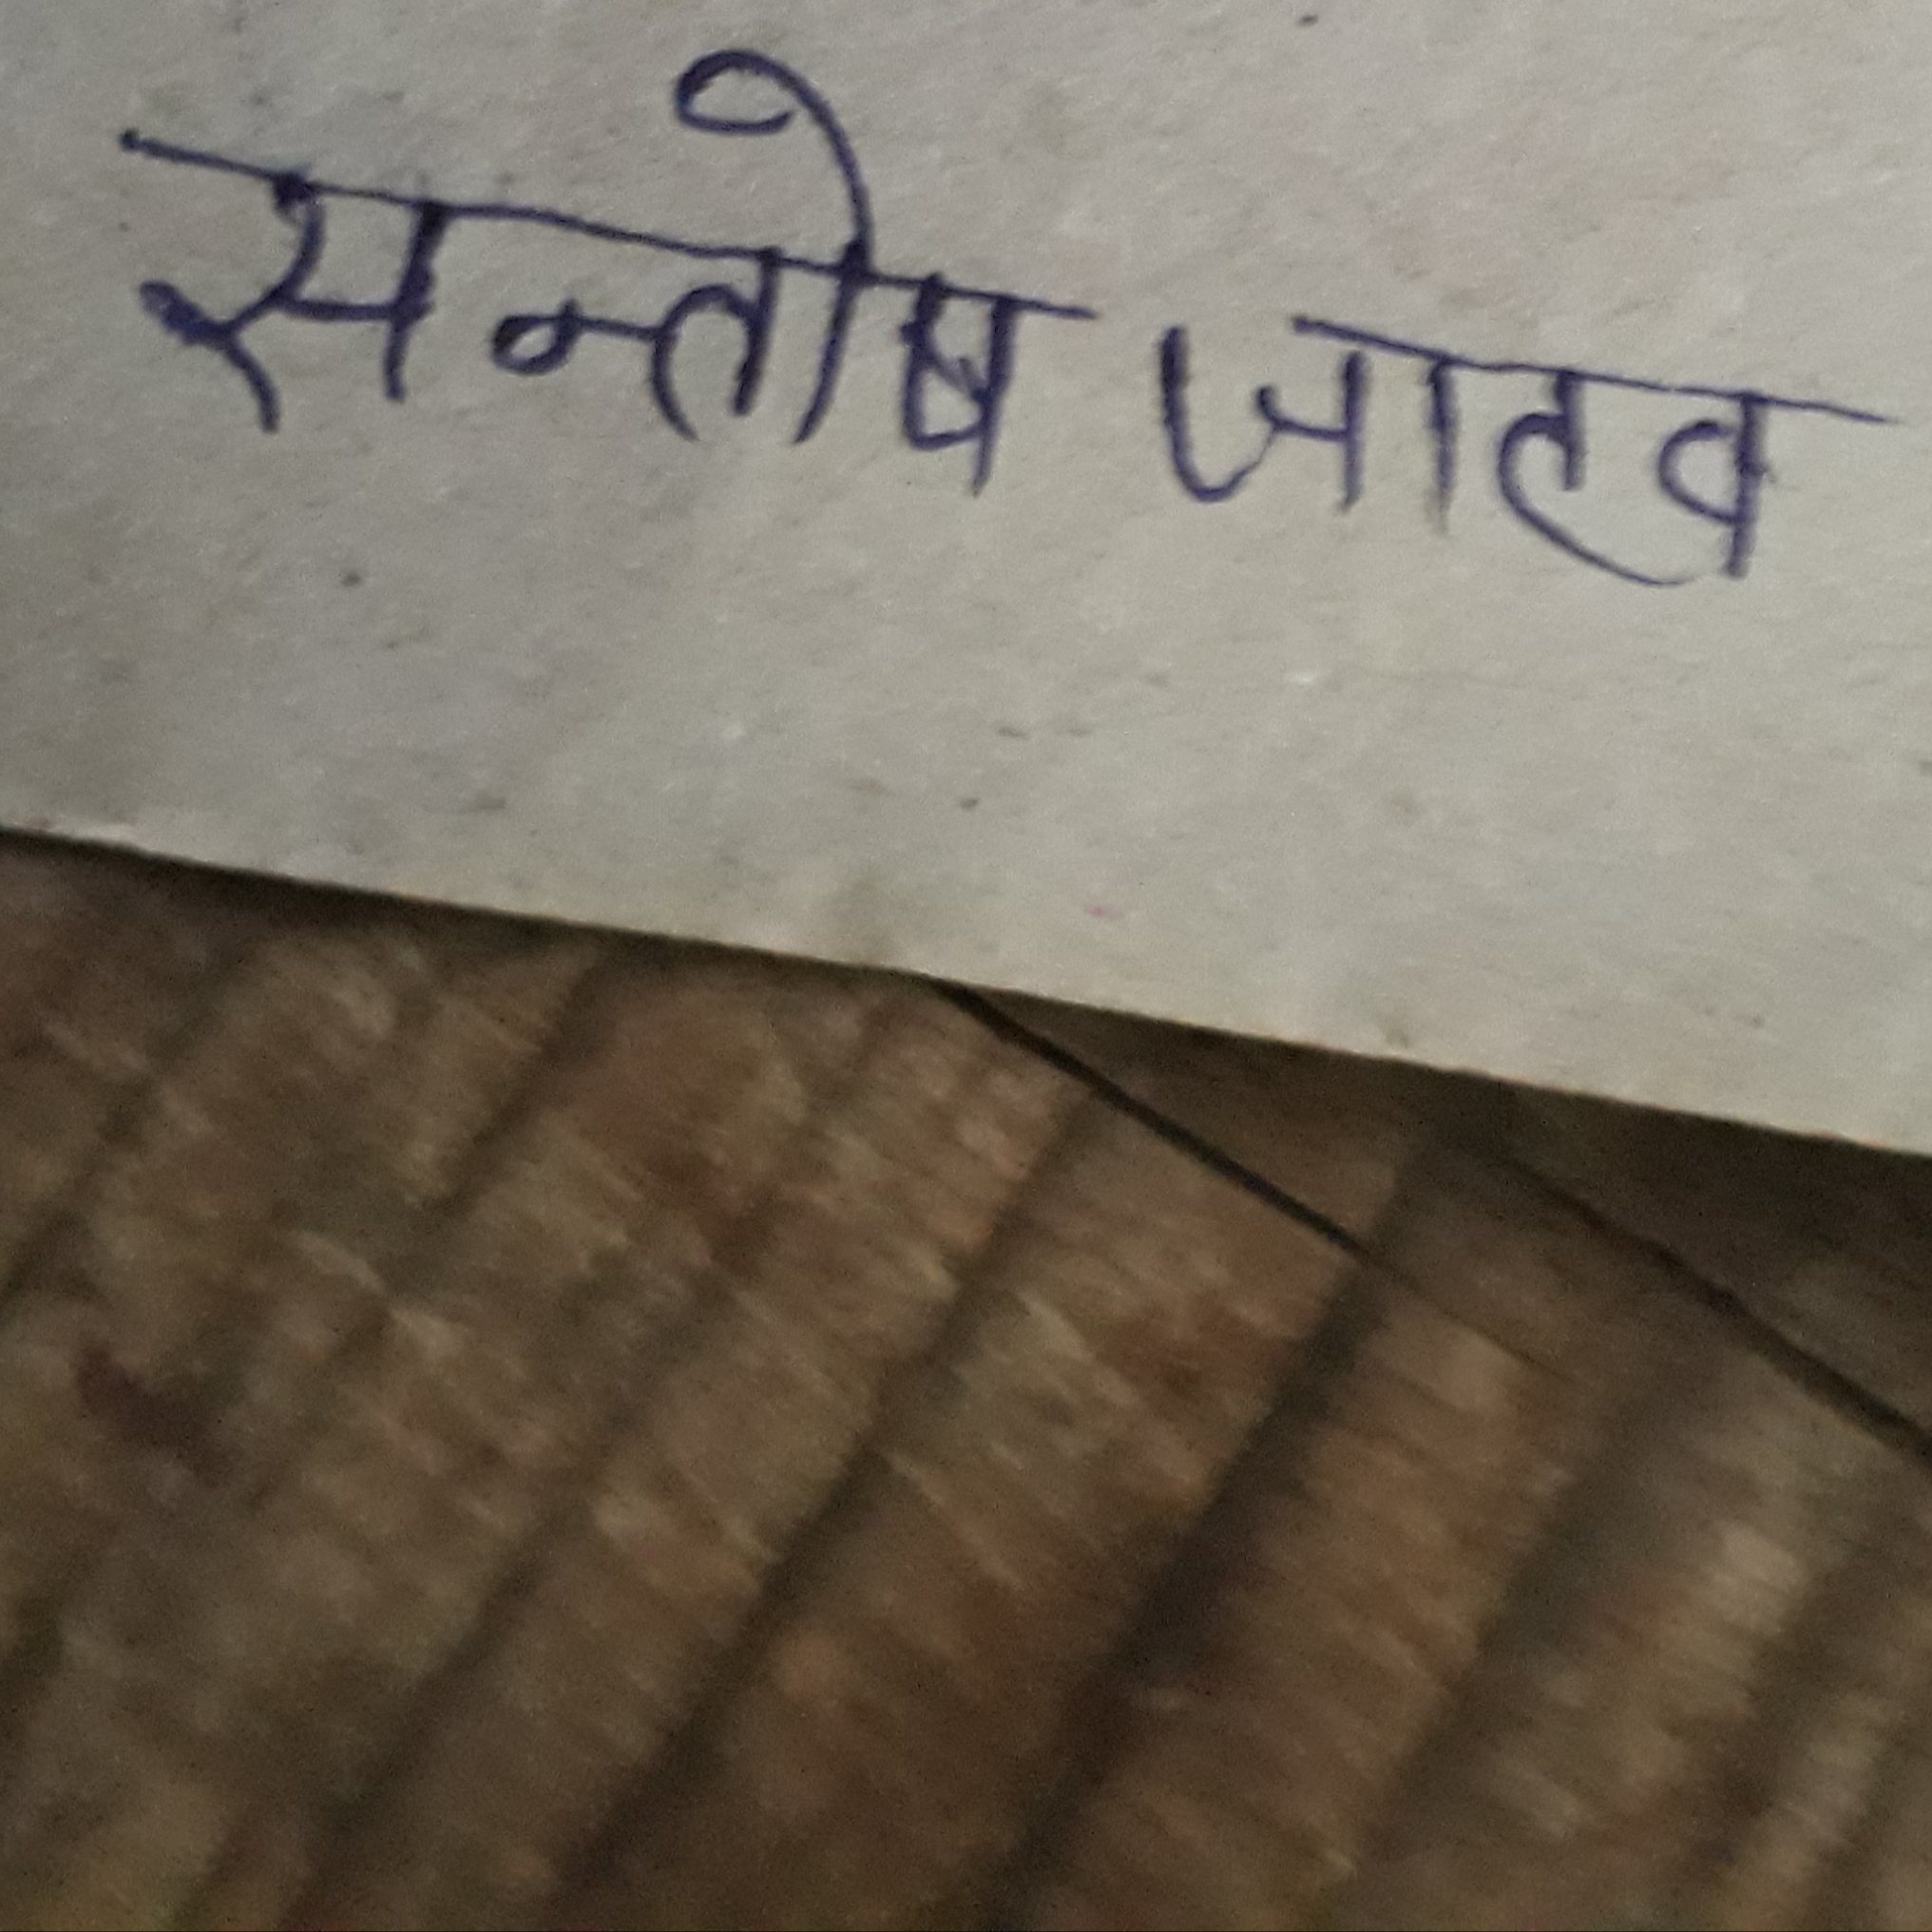 सन्तोष जाटव